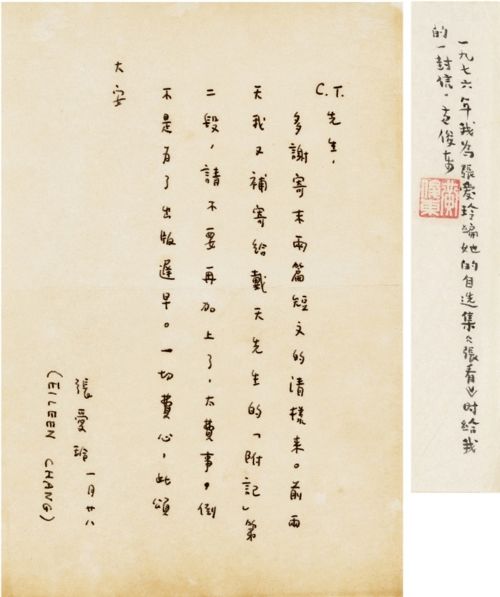 C.T. 先生，
多謝寄来兩篇短文的清樣来。前兩
天我又補寄給戴天先生的「附記」第
二段，請不要再加上了，太費事，倒
不是为了出版遲早。一切費心，此頌
大安
張愛玲 一月廿八
(EILEEN CHANG)
一九七六年我為張愛玲編她的自选集《張看》时給我
的一封信。黄俊东
黄俊東